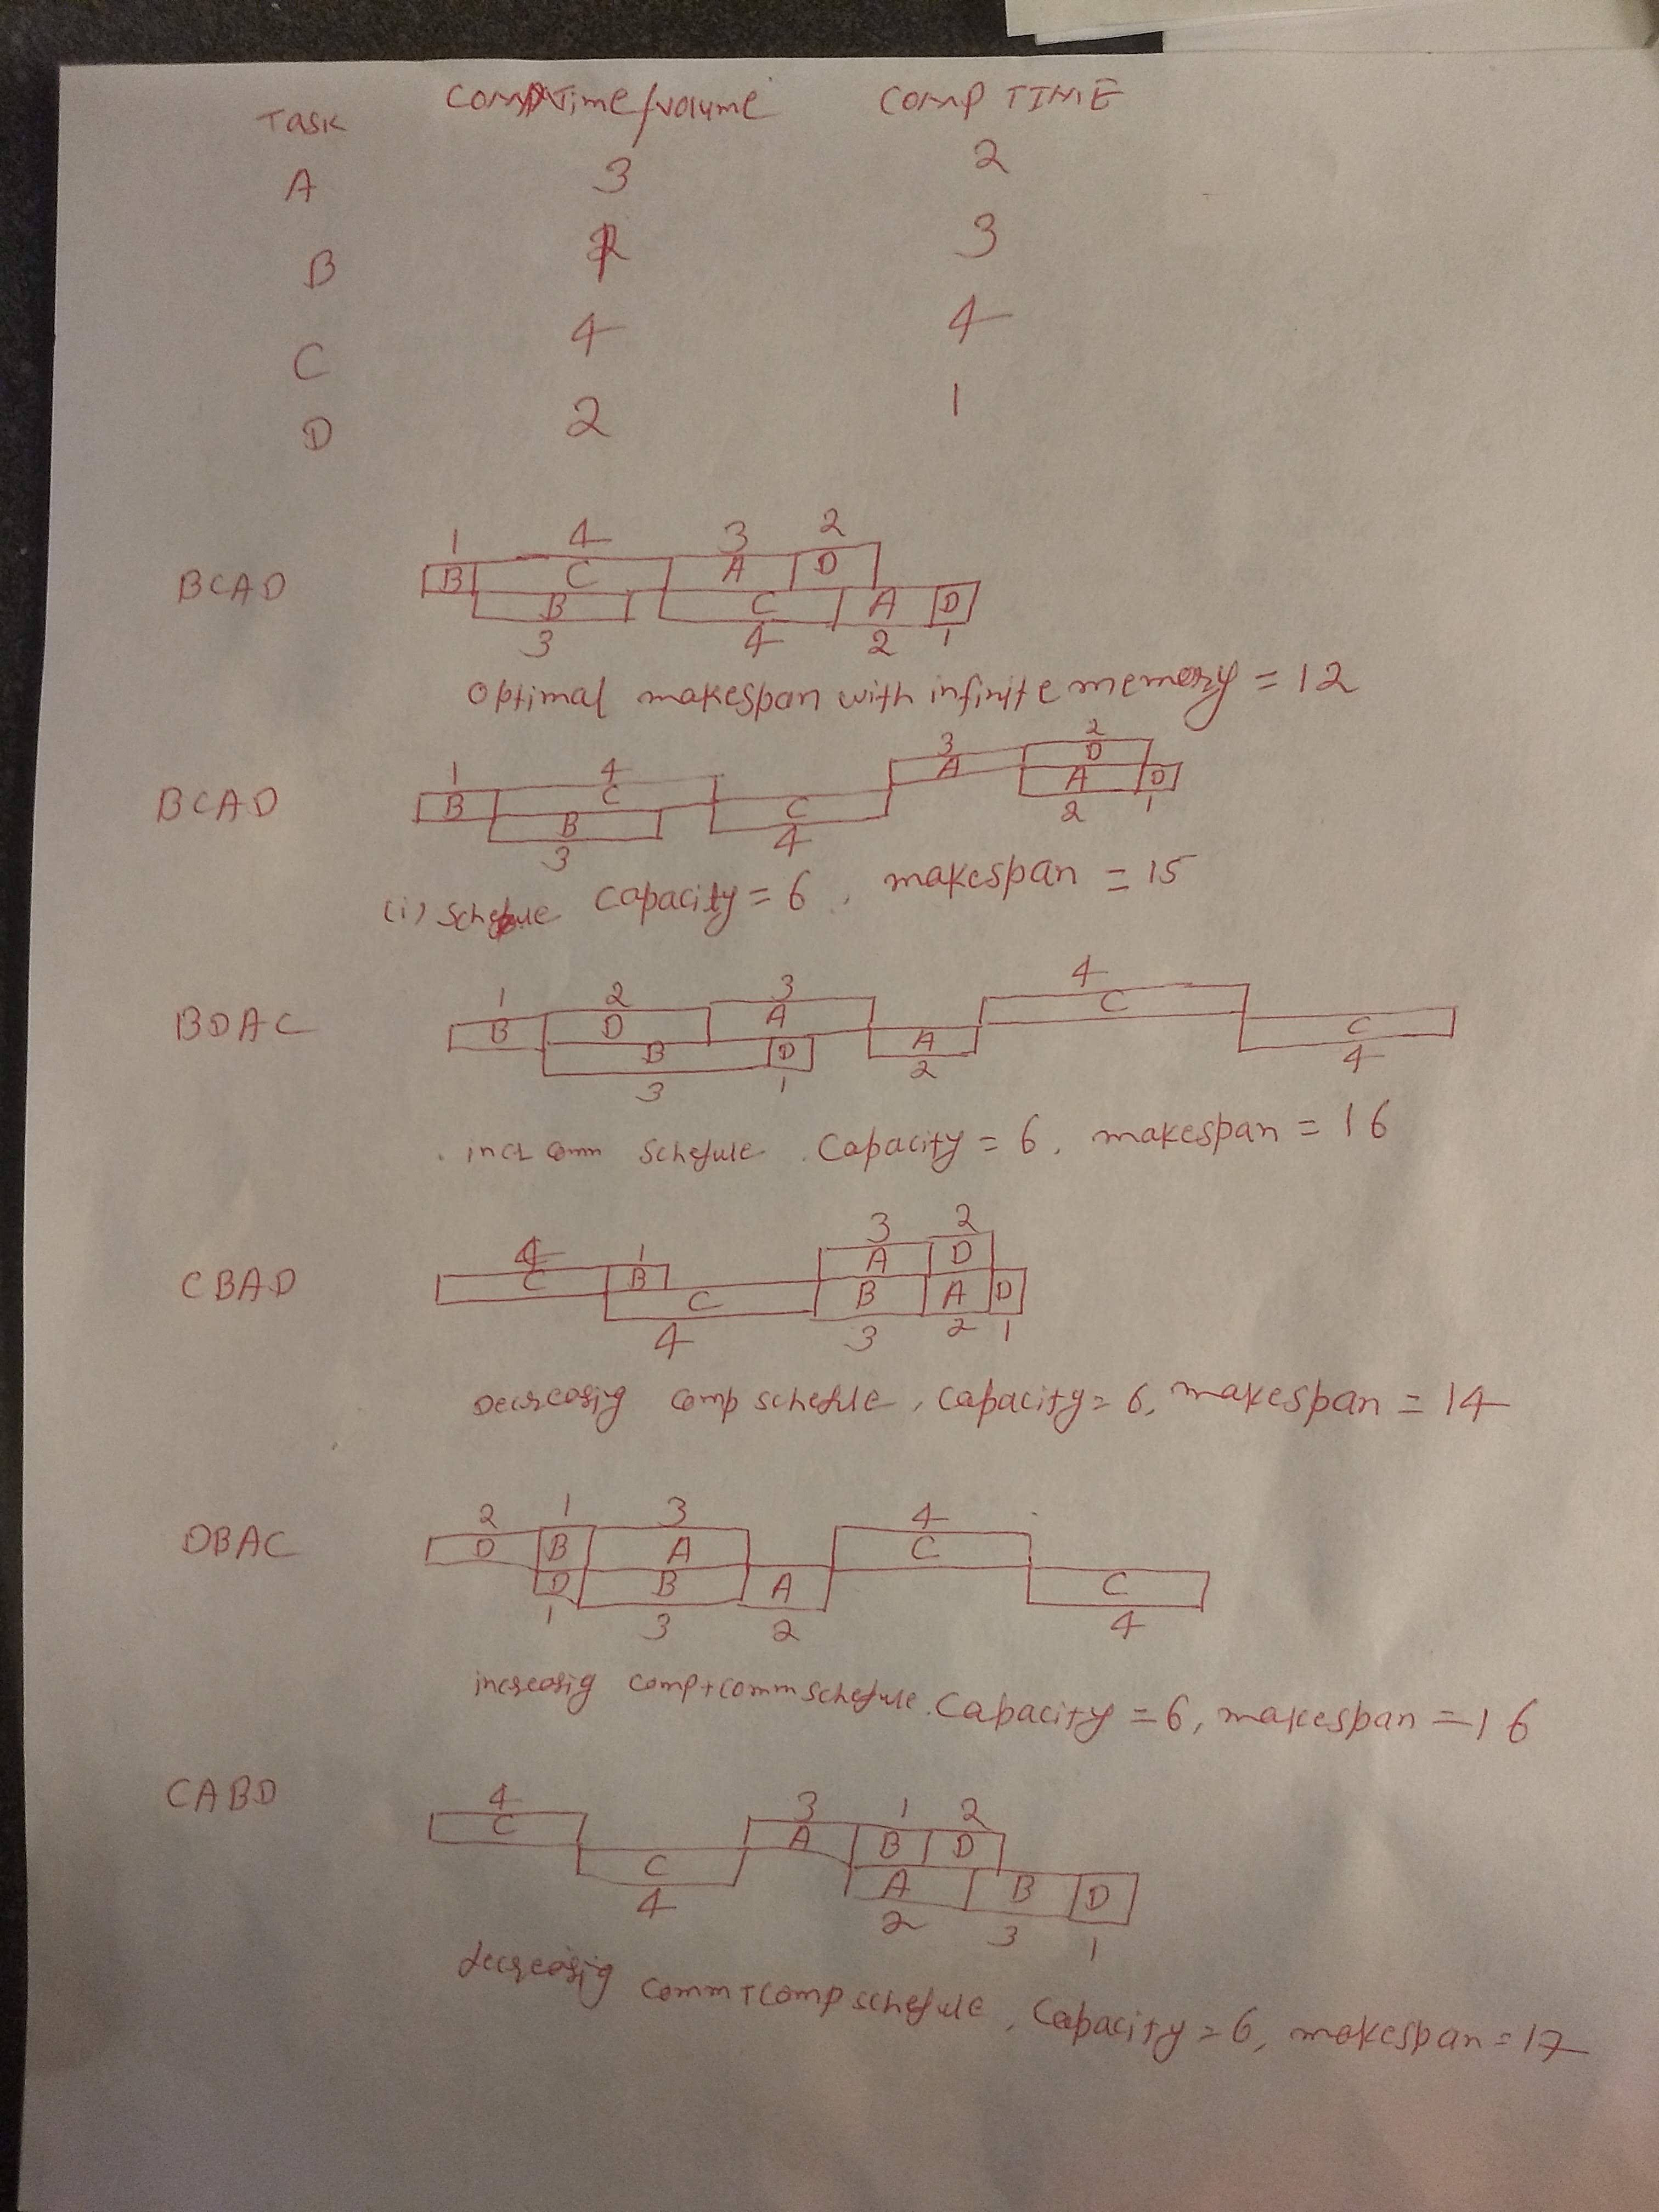 Task COMM Time/volume COMP TIME
A 3 2
B 1 3
C 4 4
D 2 1
1 4 3 2
BCAD B C A D
B C A D
3 4 2 1
Optimal makespan with infinite memory = 12
1 4 3 2
B C A D
BCAD B C A D
3 4 2 1
(i) Schedule Capacity = 6, makespan = 15
1 2 3 4
BDAC B D A C
B D A C
3 1 2 4
incr comm schedule. Capacity = 6, makespan = 16
4 1 3 2
CBAD C B A D
C B A D
4 3 2 1
Decreasig comp schedule, capacity = 6, makespan = 14
2 1 3 4
DBAC D B A C
D B A C
1 3 2 4
increasig comp+comm schedule. Capacity = 6, makespan = 16
4 3 1 2
CABD C A B D
C A B D
4 2 3 1
decreasig comm+comp schedule, Capacity = 6, makespan = 17